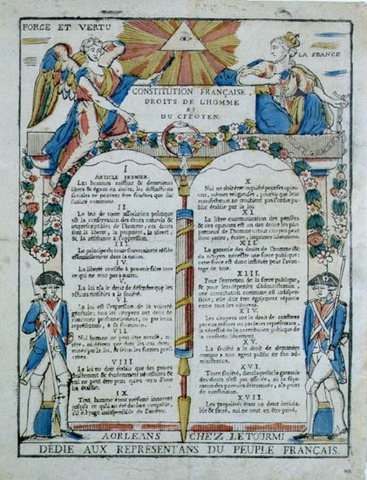 FORCE ET VERTU
LA FRANCE
CONSTITUTION FRANÇAISE.
DROITS DE L'HOMME
ET
DU CITOYEN.
I
ARTICLE PREMIER.
Les hommes naissent & demeurent
libres & égaux en droits, les distinctions
sociales ne peuvent être fondées que sur
l'utilité commune.
II.
Le but de toute association politique
est la conservation des droits naturels &
imprescriptibles de l'homme; ces droits
sont la liberté, la propriété, la sûreté,
& la résistance à l'oppression.
III.
Le principe de toute souveraineté réside
essentiellement dans la nation.
IV.
La liberté consiste à pouvoir faire tout
ce qui ne nuit pas à autrui.
V.
La loi n'a le droit de défendre que les
actions nuisibles à la société.
VI.
La loi est l'expression de la volonté
générale; tous les citoyens ont droit de
concourir personnellement, ou par leurs
représentants, à sa formation.
VII.
Nul homme ne peut être accusé,
ni détenu que dans les cas
par la loi, & selon les formes
VIII.
La loi ne doit établir que des peines
strictement & évidemment nécessaires &
nul ne peut être puni qu'en vertu d'une
loi
IX
Tout homme étant présumé innocent
jusqu'à ce qu'il ait été déclaré coupable,
X.
Nul ne doit être inquiété pour ses opinions,
même religieuses, pourvu que leur
manifestation ne trouble pas l'ordre public
établi par la loi.
XI.
La libre communication des pensées
& des opinions est un des droits les plus
précieux de l'homme; tout citoyen peut donc
parler, écrire, imprimer librement.
XII.
La garantie des droits de l'homme & du
citoyen nécessite une force publique;
cette force est donc instituée pour l'avantage
de tous.
XIII.
Pour l'entretien de la force publique,
& pour les dépenses d'administration,
une contribution commune est indispensable,
elle doit être également répartie
entre tous les citoyens.
XIV.
Les citoyens ont le droit de constater
par eux-mêmes ou par leurs représentants,
la nécessité de la contribution publique de
la consentir librement.
XV.
La société a le droit de demander
compte à tout agent public de son
administration.
XVI.
Toute société, dans laquelle la garantie
des droits n'est pas assurée, ni la séparation
des pouvoirs déterminée, n'a point
de constitution.
XVII.
Les propriétés étant un droit inviolable
& sacré, nul ne peut en être privé.
A ORLEANS CHEZ LETOURMI
DÉDIÉ AUX REPRESENTANS DU PEUPLE FRANÇAIS.